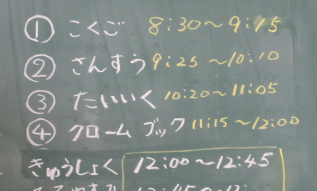 ① こくご 8:30～9:15
② さんすう 9:25～10:10
③ たいいく 10:20～11:05
④ クロームブック 11:15～12:00
きゅうしょく 12:00～12:45